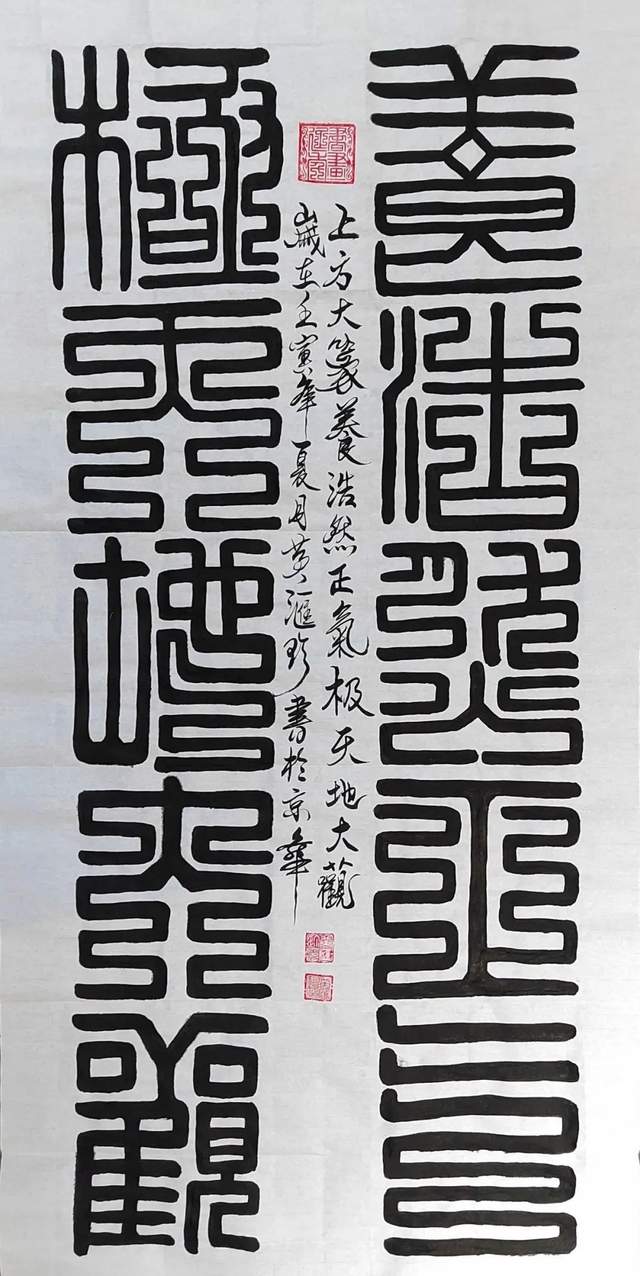 養浩然正氣
上方大篆養浩然正氣极天地大觀
歲在壬寅年夏月黄滙珍書於京華
極天地大觀